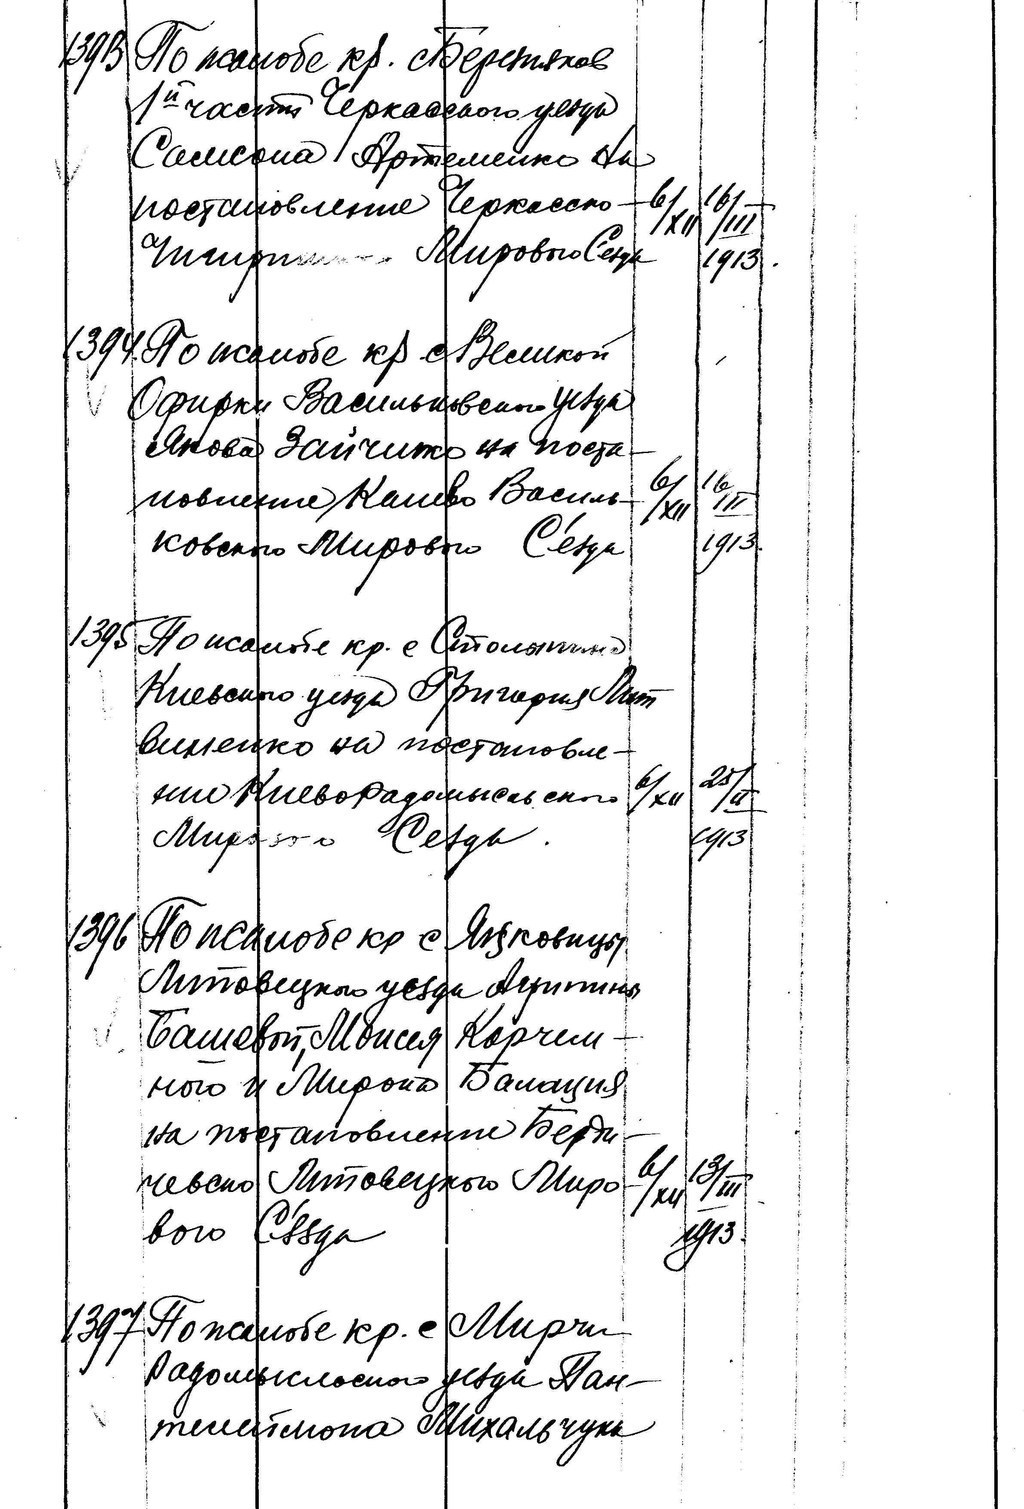 1393 По жалобе кр. с Березняков
1й части Черкасского уезда
Самсона Артеменко на
постановление Черкасско- 6/XII 16/III
Чигиринского Мирового Сезда 1913.
1394. По жалобе кр с Великой
Офирки Васильковского уезда
Якова Зайченко на поста-
новление Каневo Василь- 6/XII 16/III
ковского Мирового Съезда 1913.
1395 По жалобе кр. с
Киевского уезда Григория Лит
виненко на постановле-
ние Киево Радомысльского 6/XII 25/II
Мирового Сезда. 1913
1396 По жалобе кр с Яцковицы
Липовецкого уезда
Башевой, Моисея Корчем-
ного и Мирона Балация
на постановление Берди-
чевско Липовецкого Миро- 6/XII 13/III
вого Съезда 1913.
1397 По жалобе кр. с Мирчи
Радомысльского уезда Пан-
телеймона Михальчука